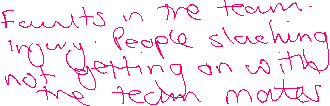 Faults in the team.
Injury. People slacking
not getting on with
the team mates